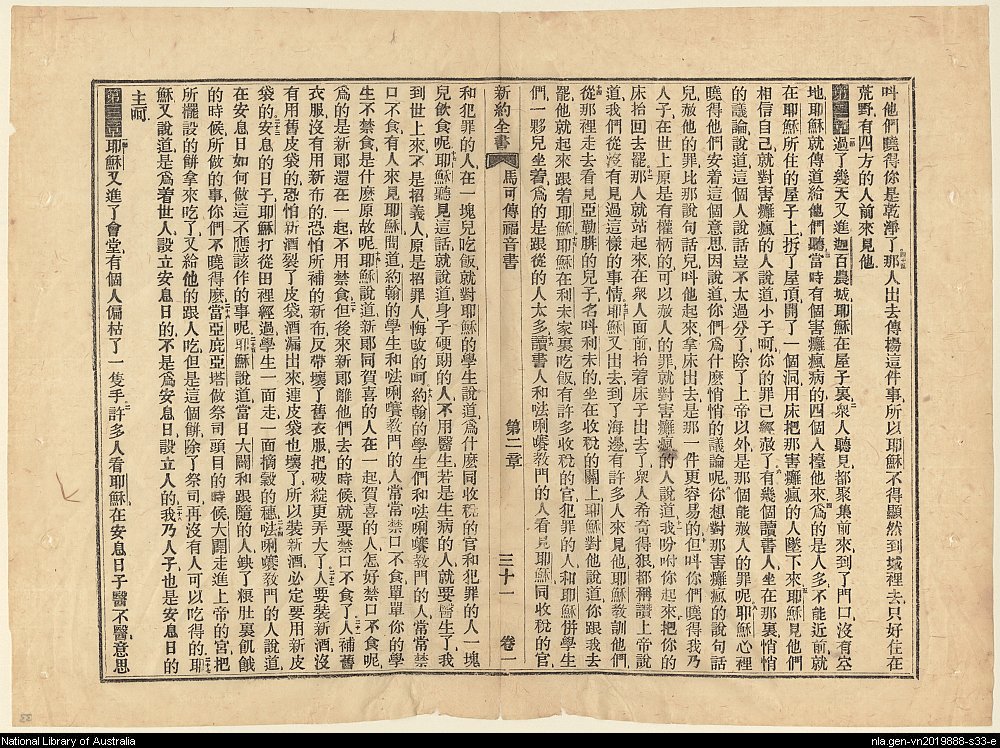 呌他們曉得你是乾淨了那人出去傳揚這件事所以耶穌不得顯然到城裡去只好住在
荒野有四方的人前來見他
第二章過了幾天又進迦百農城耶穌在屋子裏衆人聽見都聚集前來到了門口沒有空
地耶穌就傳道給他們聽當時有個害癱瘋病的四個人擡他來爲的是人多不能近前就
在耶穌所住的屋子上拆了屋頂開了一個洞用床把那害癱瘋的人墜下來耶穌見他們
相信自己就對害癱瘋的人說道小子呵你的罪已經赦了有幾個讀書人坐在那裏悄悄
的議論說道這個人說話豈不太過分了除了上帝以外是那個能赦人的罪呢耶穌心裡
曉得他們安着這個意思因說道你們爲什麽悄悄的議論呢你想對那害癱瘋的說句話
兒赦他的罪比那說句話兒呌他起來拿床出去是那一件更容易的但呌你們曉得我乃
人子在世上原是有權柄的可以赦人的罪就對害癱瘋的人說道我吩咐你起來把你的
床抬回去罷那人就站起來在衆人面前抬着床子出去了衆人希奇得狠都稱讚上帝說
道我們從沒有見過這樣的事情耶穌又出去到了海邊有許多人來見他耶穌教訓他們
從那裡走去看見亞勒腓的兒子名呌利未的坐在收稅的關上耶穌對他說道你跟我去
罷他就起來跟着耶穌耶穌在利未家裏吃飯有許多收稅的官犯罪的人和耶穌併學生
們一夥兒坐着爲的是跟從的人太多讀書人和𠵽唎㘔教門的人看見耶穌同收稅的官
新約全書 馬可傳福音書 第二章 三十一 卷一
和犯罪的人在一塊兒吃飯就對耶穌的學生說道爲什麽同收稅的官和犯罪的人一塊
兒飲食呢耶穌聽見這話就說道身子硬朗的人不用醫生若是生病的人就要醫生了我
到世上來不是招義人原是招罪人悔改的呵約翰的學生們和𠵽唎㘔教門的人常常禁
口不食有人來見耶穌問道約翰的學生和𠵽唎㘔教門的人常常禁口不食單單你的學
生不禁食是什麽原故呢耶穌說道新郎同賀喜的人在一起賀喜的人怎好禁口不食呢
爲的是新郎還在一起不用禁食但後來新郎離他們去的時候就要禁口不食了人補舊
衣服沒有用新布的恐怕所補的新布反帶壞了舊衣服把破綻更弄大了人要裝新酒沒
有用舊皮袋的恐怕新酒裂了皮袋酒漏出來連皮袋也壞了所以裝新酒必定要用新皮
袋的安息日的日子耶穌打從田裡經過學生一面走一面摘穀的穗𠵽唎㘔教門的人說道
在安息日如何做這不應該作的事呢耶穌說道當日大闢和跟隨的人缺了糧肚裏飢餓
的時候所做的事你們不曉得麽當亞庇亞塔做祭司頭目的時候大闢走進上帝的宮把
所擺設的餅拿來吃了又給他的跟人吃但是這個餅除了祭司再沒有人可以吃得的耶
穌又說道是爲着世人設立安息日的不是爲安息日設立人的我乃人子也是安息日的
主呵
第三章耶穌又進了會堂有個人偏枯了一隻手許多人看耶穌在安息日子醫不醫意思
33
National Library of Australia
nla.gen-vn2019888-s33-e